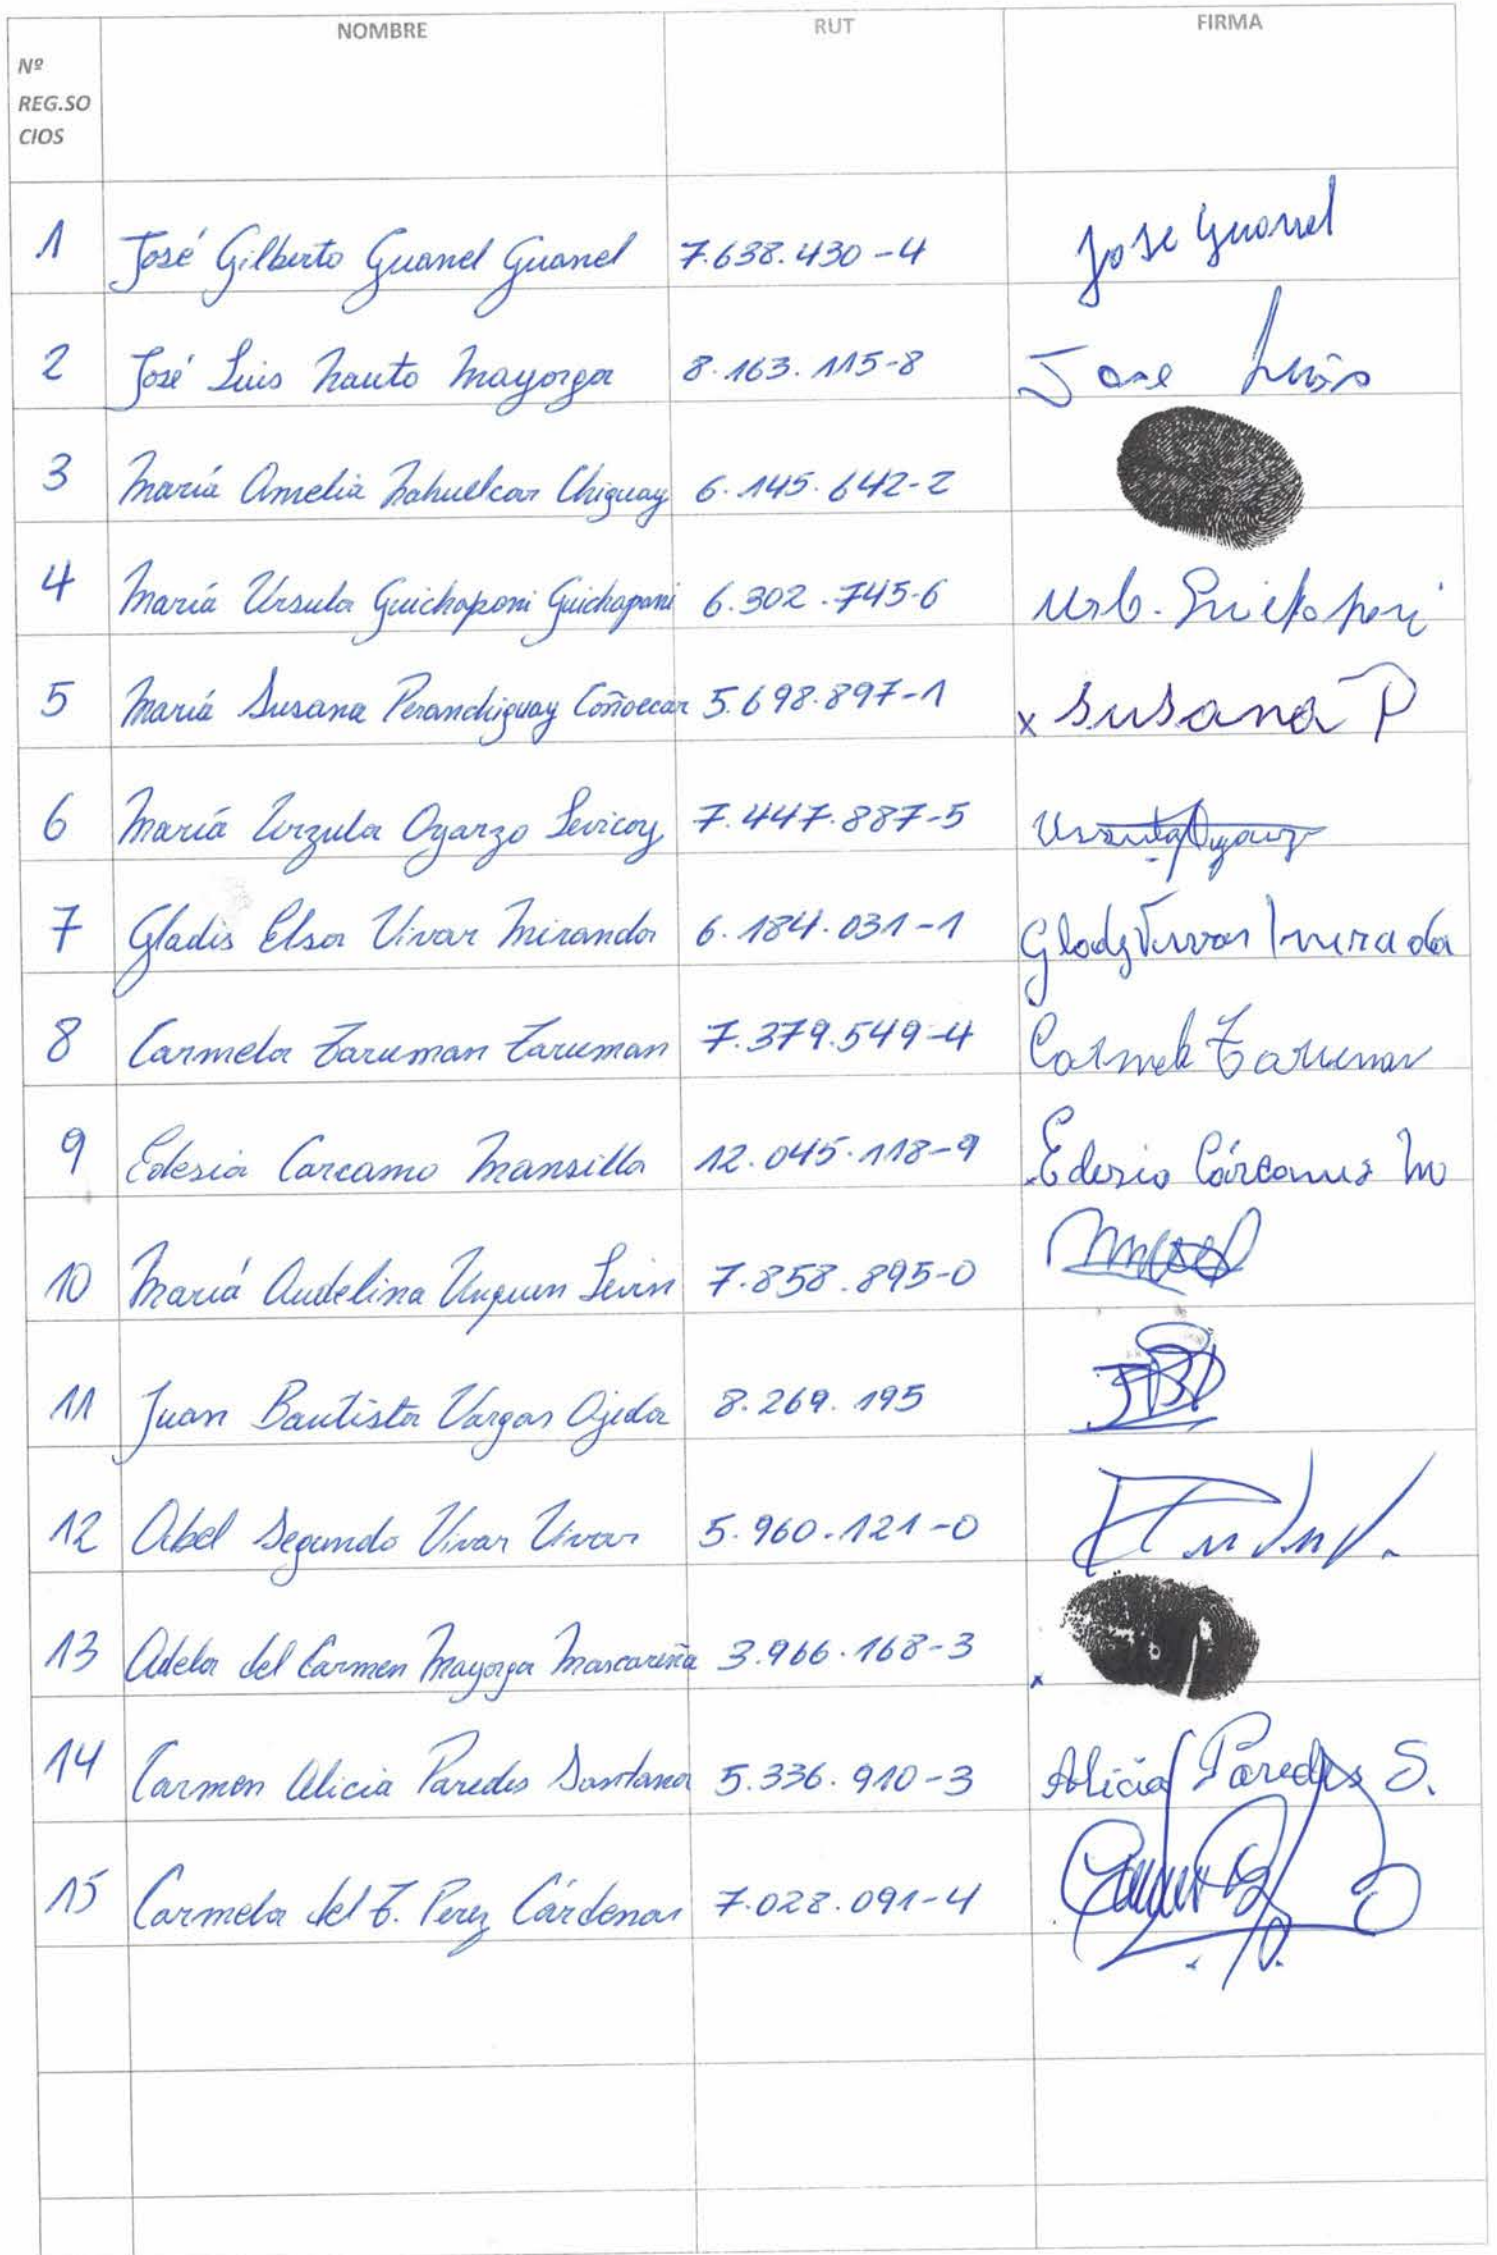 Nº REG.SOCIOS NOMBRE RUT FIRMA
1 José Gilberto Guanel Guanel 7.638.430-4 Jose Guanel
2 José Luis Nauto Mayorga 8.163.115-8 Jose Luis
3 María Amelia Nahuelcar Chiguay 6.145.642-2
4 María Ursula Guichapani Guichapani 6.302.745-6
5 María Susana Peranchiguay Coñoecar 5.698.897-1 x Susana P
6 María Urzula Oyarzo Levicoy 7.447.887-5
7 Gladis Elsa Vivar Miranda 6.184.031-1
8 Carmela Taruman Taruman 7.379.549-4 Carmela Taruman
9 Edesia Carcamo Mansilla 12.045.118-9 Edesia Cárcamo M
10 María Audelina Unquen Levin 7.858.895-0
11 Juan Bautista Vargas Ojeda 8.269.195
12 Abel Segundo Vivar Vivar 5.960.121-0
13 Adela del Carmen Mayorga Mascareña 3.966.168-3 x
14 Carmen Alicia Paredes Santana 5.336.910-3 Alicia Paredes S.
15 Carmela del T. Perez Cárdenas 7.028.091-4